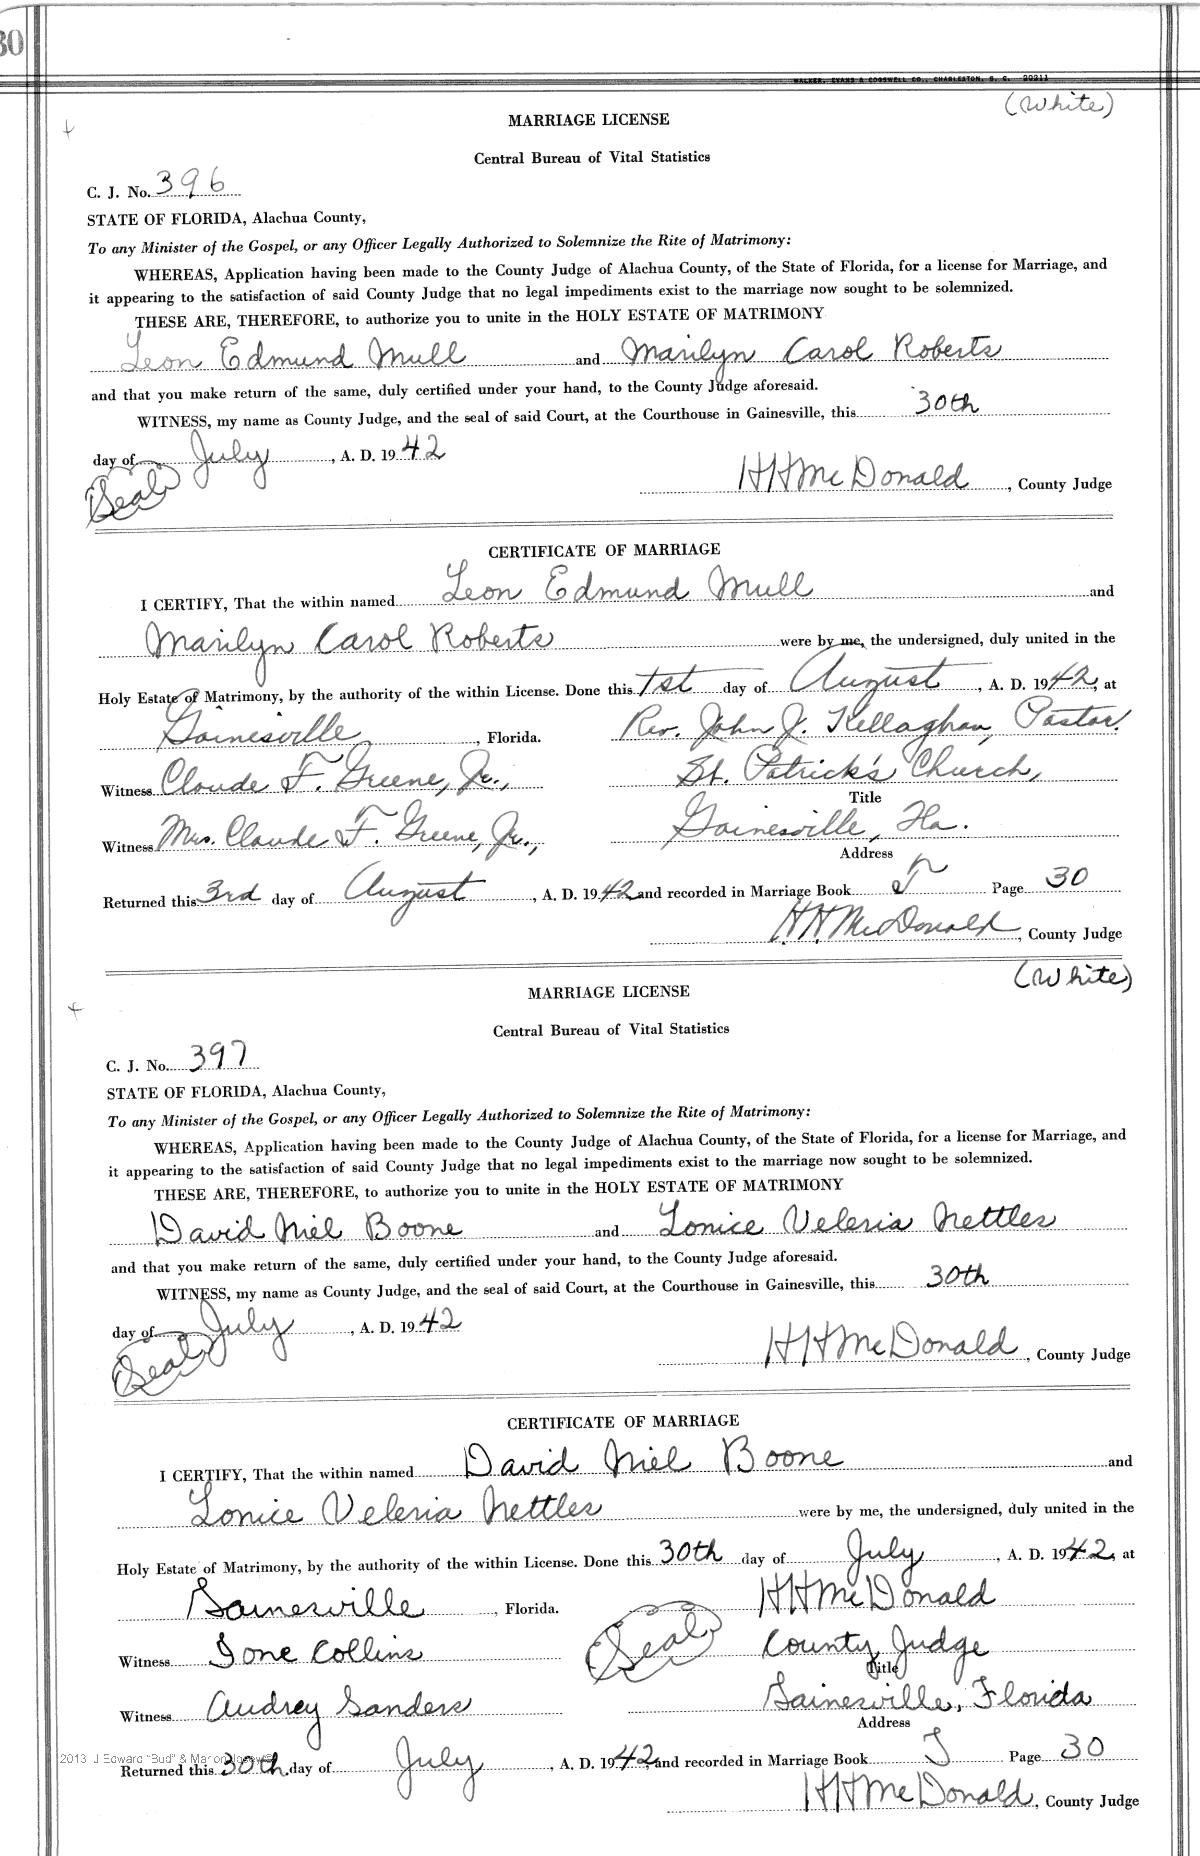 30
WALKER, EVANS & COGSWELL CO., CHARLESTON, S. C. 20211
(White)
MARRIAGE LICENSE
Central Bureau of Vital Statistics
C. J. No. 396
STATE OF FLORIDA, Alachua County,
To any Minister of the Gospel, or any Officer Legally Authorized to Solemnize the Rite of Matrimony:
WHEREAS, Application having been made to the County Judge of Alachua County, of the State of Florida, for a license for Marriage, and
it appearing to the satisfaction of said County Judge that no legal impediments exist to the marriage now sought to be solemnized.
THESE ARE, THEREFORE, to authorize you to unite in the HOLY ESTATE OF MATRIMONY
Leon Edmund Mull and Marilyn Carol Roberts
and that you make return of the same, duly certified under your hand, to the County Judge aforesaid.
WITNESS, my name as County Judge, and the seal of said Court, at the Courthouse in Gainesville, this 30th
day of July, A. D. 1942
(Seal) HH McDonald, County Judge
CERTIFICATE OF MARRIAGE
I CERTIFY, That the within named Leon Edmund Mull and
Marilyn Carol Roberts were by me, the undersigned, duly united in the
Holy Estate of Matrimony, by the authority of the within License. Done this 1st day of August, A. D. 1942, at
Gainesville, Florida. Rev. John J. Kellaghan, Pastor.
Witness Claude F. Greene, Jr., St. Patrick's Church,
Title
Witness Mrs. Claude F. Greene, Jr., Gainesville, Fla.
Address
Returned this 3rd day of August, A. D. 1942 and recorded in Marriage Book J Page 30
H.H. McDonald, County Judge
(White)
MARRIAGE LICENSE
Central Bureau of Vital Statistics
C. J. No. 397
STATE OF FLORIDA, Alachua County,
To any Minister of the Gospel, or any Officer Legally Authorized to Solemnize the Rite of Matrimony:
WHEREAS, Application having been made to the County Judge of Alachua County, of the State of Florida, for a license for Marriage, and
it appearing to the satisfaction of said County Judge that no legal impediments exist to the marriage now sought to be solemnized.
THESE ARE, THEREFORE, to authorize you to unite in the HOLY ESTATE OF MATRIMONY
David Niel Boone and Lonice Veleria Nettles
and that you make return of the same, duly certified under your hand, to the County Judge aforesaid.
WITNESS, my name as County Judge, and the seal of said Court, at the Courthouse in Gainesville, this 30th
day of July, A. D. 1942
(Seal) HH McDonald, County Judge
CERTIFICATE OF MARRIAGE
I CERTIFY, That the within named David Niel Boone and
Lonice Veleria Nettles were by me, the undersigned, duly united in the
Holy Estate of Matrimony, by the authority of the within License. Done this 30th day of July, A. D. 1942, at
Gainesville, Florida. HH McDonald
Witness Ione Collins (Seal) County Judge
Title
Witness Audrey Sanders Gainesville, Florida
Address
2013 J Edward "Bud" & Marion
Returned this 30th day of July, A. D. 1942, and recorded in Marriage Book J Page 30
HH McDonald, County Judge